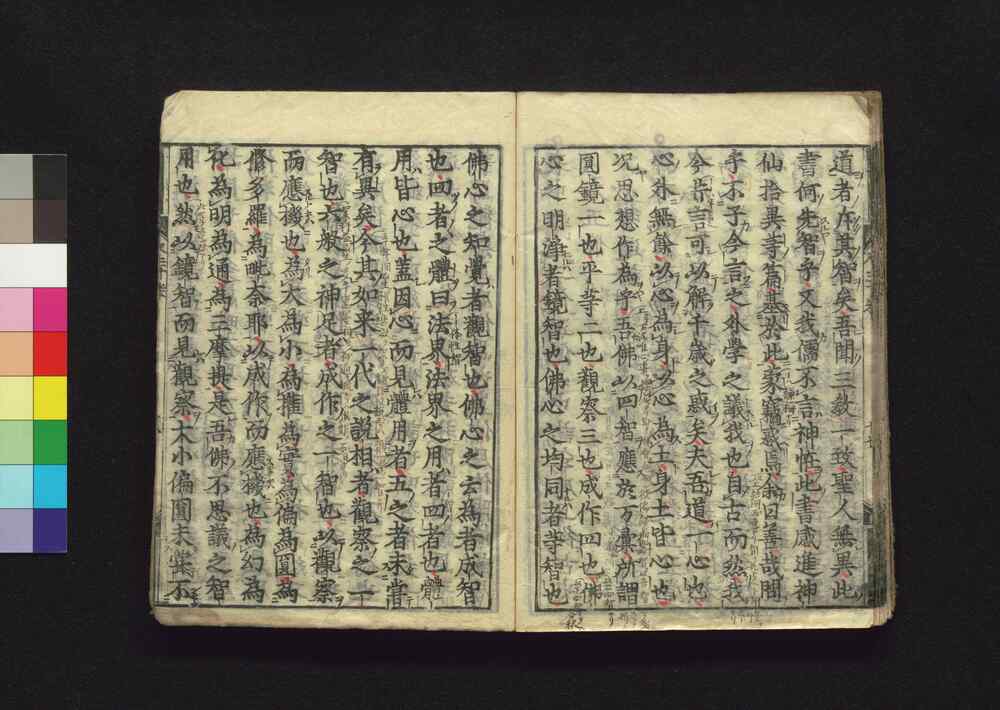 道者斥其智矣吾聞三教一致聖人無異此
書何先智乎又我儒不言神怪此書盛進神
仙拾異等篇甚於此蒙竊惑焉余曰善哉問
乎不予今言之外學之議我也自古而然我
今片言可以解千歲之惑矣夫吾道一心也
心外無餘以心為身以心為土身土皆心也
况思想作為乎吾佛以四智應於万彙所謂
圓鏡一也平等二也觀察三也成作四也佛
心之明淨者鏡智也佛心之均同者等智也
佛心之知覺者觀智也佛心之云為者成智
也四者之體曰法界法界之用者四者也體
用皆心也蓋因心而見體用者五之者未嘗
有異矣今其如來一代之說相者觀察之一
智也六般之神足者成作之一智也以觀察
而應機也為大為小為權為實為偏為圓為
修多羅為毗奈耶以成作而應機也為幻為
化為明為通為三摩提是吾佛不思議之智
用也然以鏡智而見觀察大小偏圓未嘗不